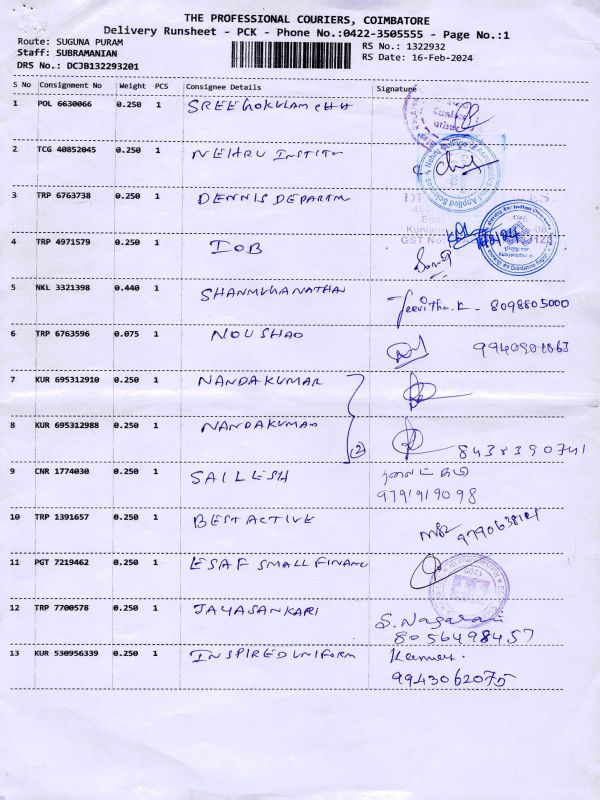 THE PROFESSIONAL COURIERS, COIMBATORE
Delivery Runsheet - PCK - Phone No.:0422-3505555 - Page No.:1
Route: SUGUNA PURAM
RS No.: 1322932
Staff: SUBRAMANIAN
RS Date: 16-Feb-2024
DRS No.: DCJB132293201
S No Consignment No Weight PCS Consignee Details Signature
1 POL 6630066 0.250 1 SREE GOKULAM CHH
2 TCG 40852045 0.250 1 NEHRU INSTITU
3 TRP 6763738 0.250 1 DENNIS DEPARTM
4 TRP 4971579 0.250 1 IOB
5 NKL 3321398 0.440 1 SHANMUGANATHAN Jeevitha.K - 8098805000
6 TRP 6763596 0.075 1 NOUSHAD
7 KUR 695312910 0.250 1 NANDAKUMAR
8 KUR 695312988 0.250 1 NANDAKUMAR (2) 8438390741
9 CNR 1774030 0.250 1 SAILESH
9791919098
10 TRP 1391657 0.250 1 BEST ACTIVE
11 PGT 7219462 0.250 1 ESAF SMALL FINANC
12 TRP 7700578 0.250 1 JAYASANKARI S. Nagarani
8056498457
13 KUR 530956339 0.250 1 INSPIRED UNIFORM
9943062075